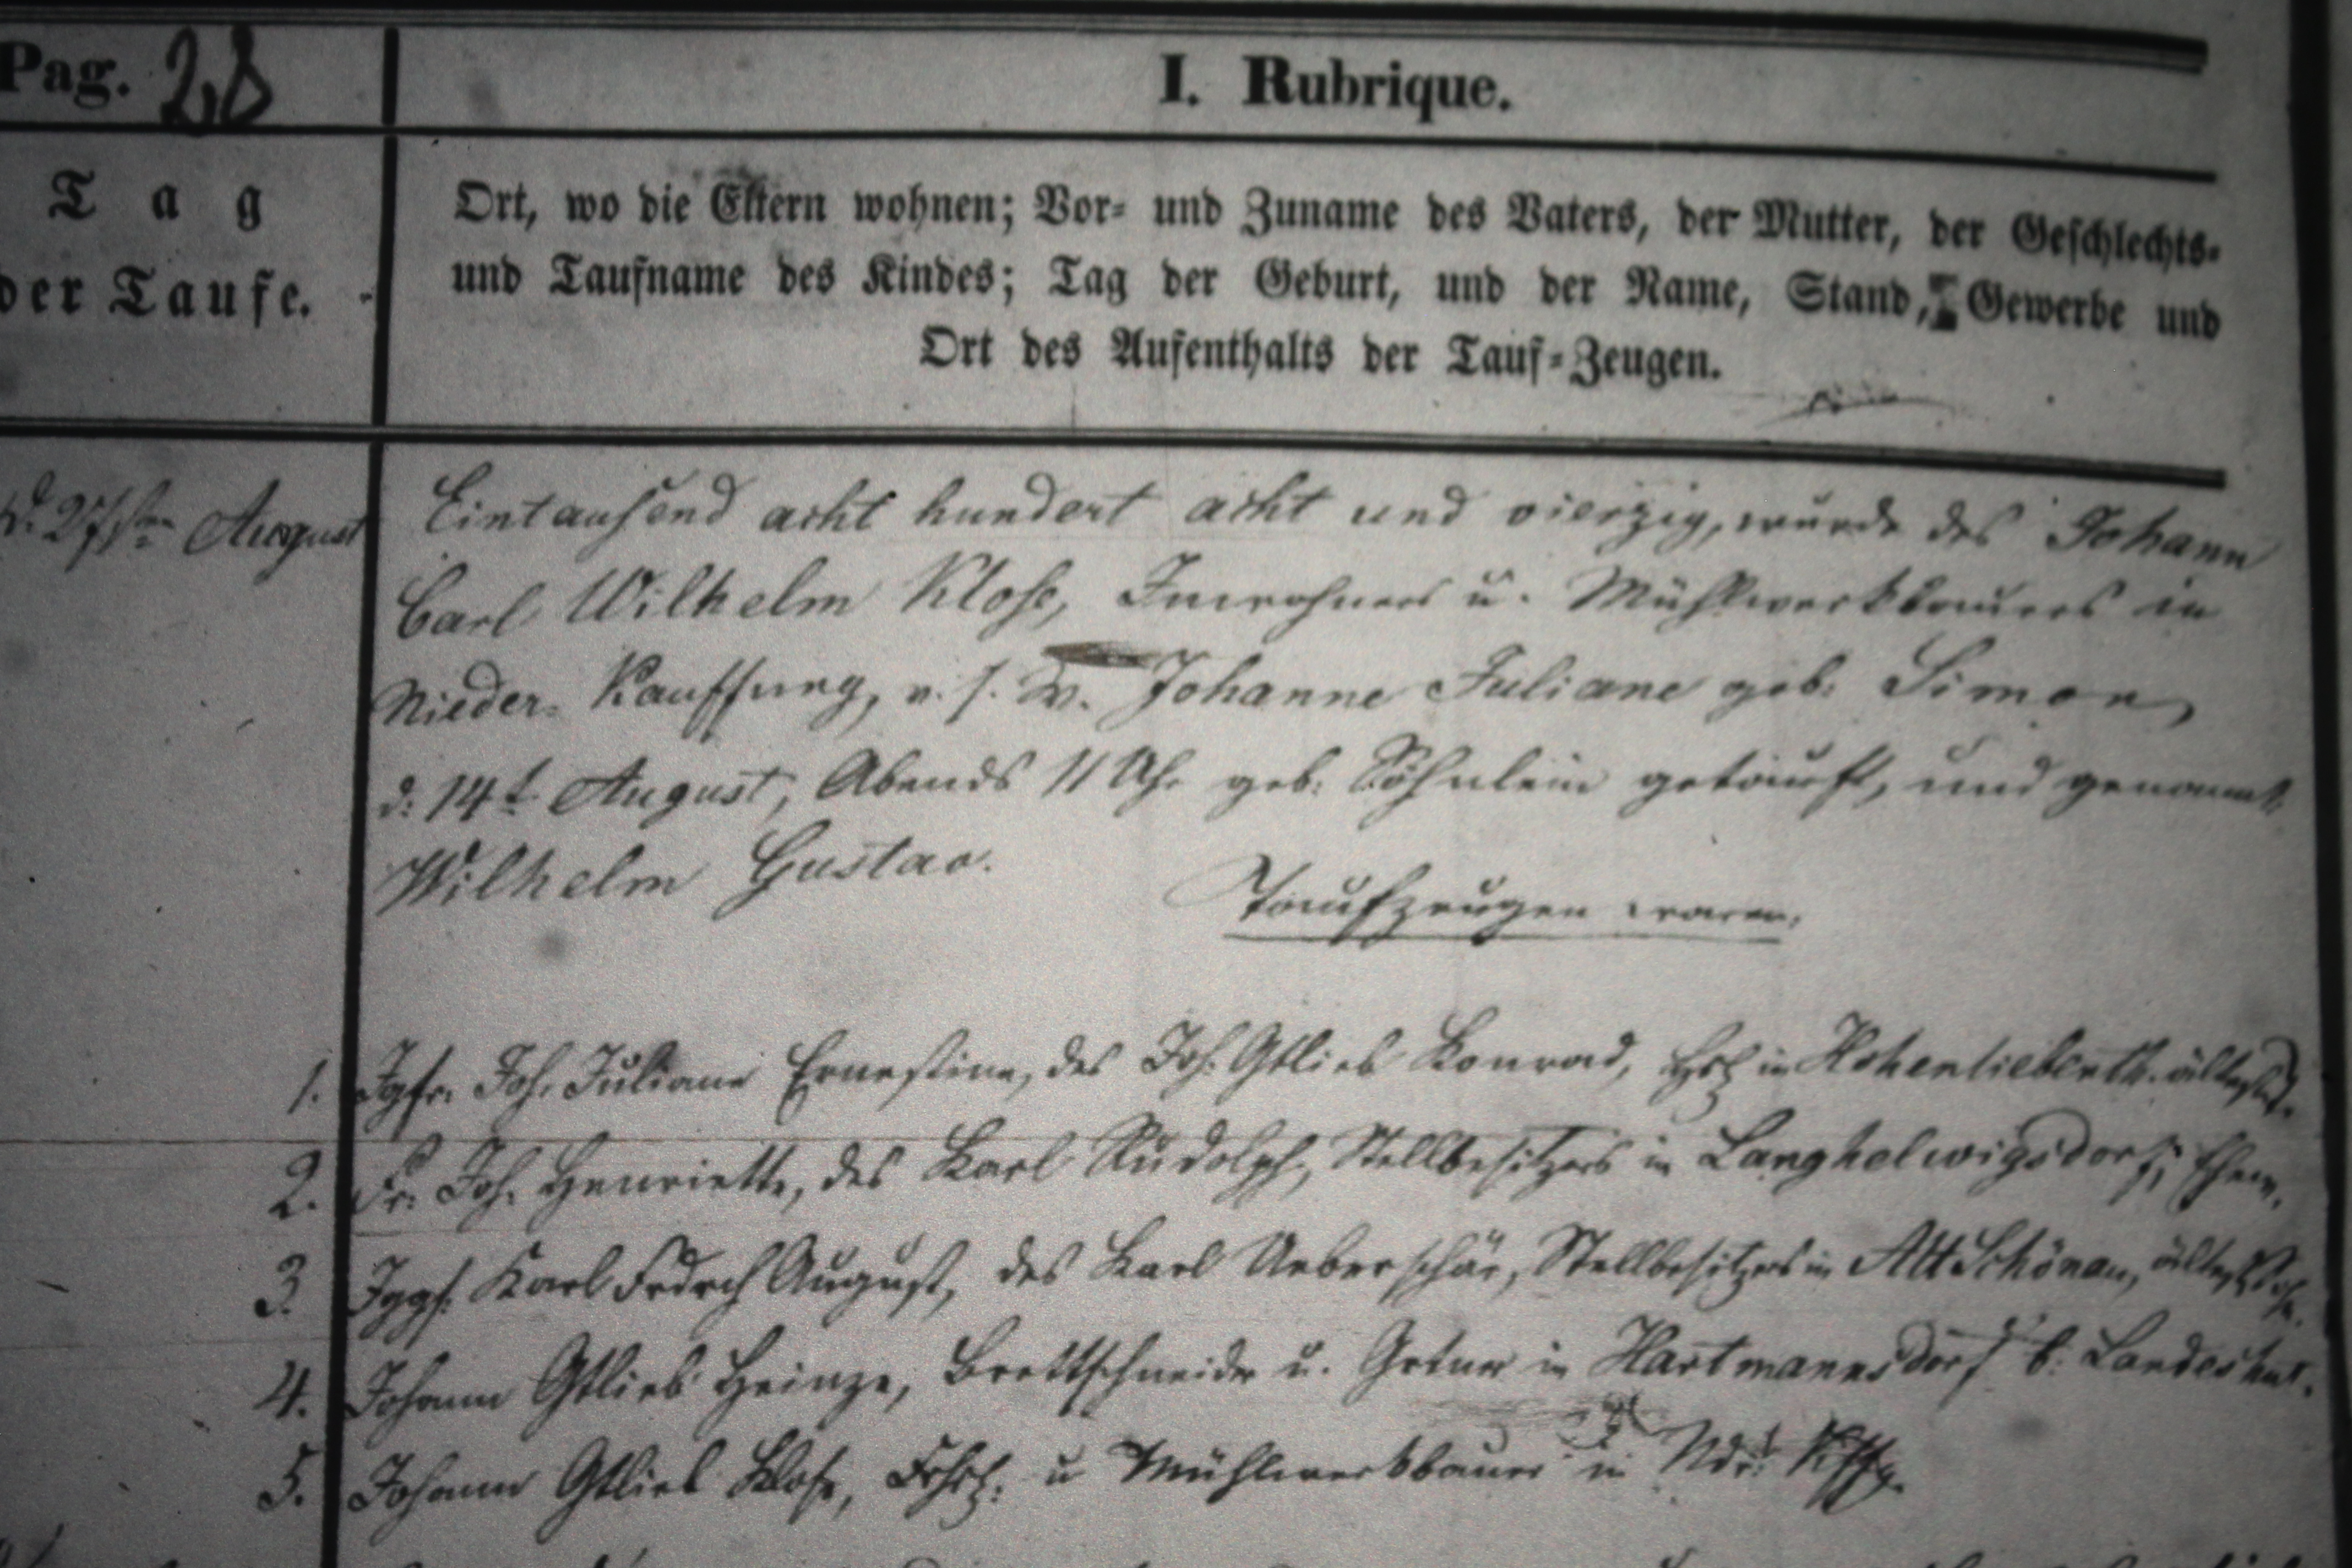 Pag. 28
I. Rubrique.
Tag
der Taufe.
Ort, wo die Eltern wohnen; Vor- und Zuname des Vaters, der Mutter, der Geschlechts-
und Taufname des Kindes; Tag der Geburt, und der Name, Stand, Gewerbe und
Ort des Aufenthalts der Tauf-Zeugen.
d. 27sten August
Eintausend acht hundert acht und vierzig, wurde des Johann
Carl Wilhelm Klose, Inwohners u. Mühlwerkbauers in
Nieder-Kauffung, v. s. W. Johanne Juliane geb: Simon,
d: 14t August, Abends 11 Uhr geb: Söhnlein getauft, und genannt
Wilhelm Gustav.
Taufzeugen waren:
1. Jgfr. Joh. Juliane Ernestine, des Joh. Gtlieb Konrad, in Hohenliebenth. ältest.
2. Fr: Joh. Henriette, des Karl Rudolph, Stellbesitzers in Langhelwigsdorf, Ehew.
3. Jggs. Karl Fedrch August, des Karl Ueberschär, Stellbesitzers in Alt Schönau, ältest.
4. Johann Gtlieb Heinze, Brettschneider u. in Hartmannsdorf b. Landeshut.
5. Johann Gtlieb Klose, u Mühlwerkbauer in Ndr: Kffg.